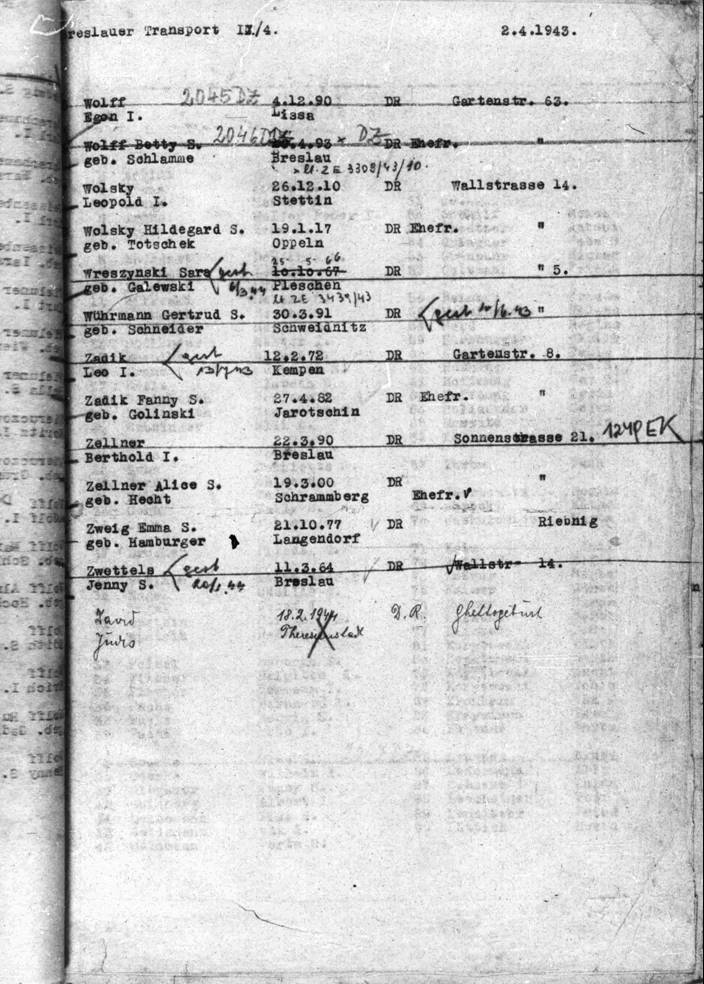 reslauer Transport IX/4. 2.4.1943.
Wolff 2045 DZ 4.12.90 DR Gartenstr. 63.
Egon I. Lissa
Wolff Betty S. 2046 DZ .4.93 x DZ DR Ehefr. "
geb. Schlamme Breslau
3309/43/10.
Wolsky 26.12.10 DR Wallstrasse 14.
Leopold I. Stettin
Wolsky Hildegard S. 19.1.17 DR Ehefr. "
geb. Totschek Oppeln
25. 5. 66
Wreszynski Sara gest 10.10.67 DR " 5.
geb. Galewski 6/3.44 Pleschen
3439/43
Wührmann Gertrud S. 30.3.91 DR gest "
geb. Schneider Schweidnitz
Zadik gest 12.2.72 DR Gartenstr. 8.
Leo I. Kempen
Zadik Fanny S. 27.4.82 DR Ehefr. "
geb. Golinski Jarotschin
Zellner 22.3.90 DR Sonnenstrasse 21. 1249 EK
Berthold I. Breslau
Zellner Alice S. 19.3.00 DR "
geb. Hecht Schrammberg Ehefr.
Zweig Emma S. 21.10.77 DR Riebnig
geb. Hamburger Langendorf
Zwettels gest 11.3.64 DR Wallstr- 14.
Jenny S. 20/1.44 Breslau
18.2.1944 D.R. Ghettogeburt
Judis Theresienstadt